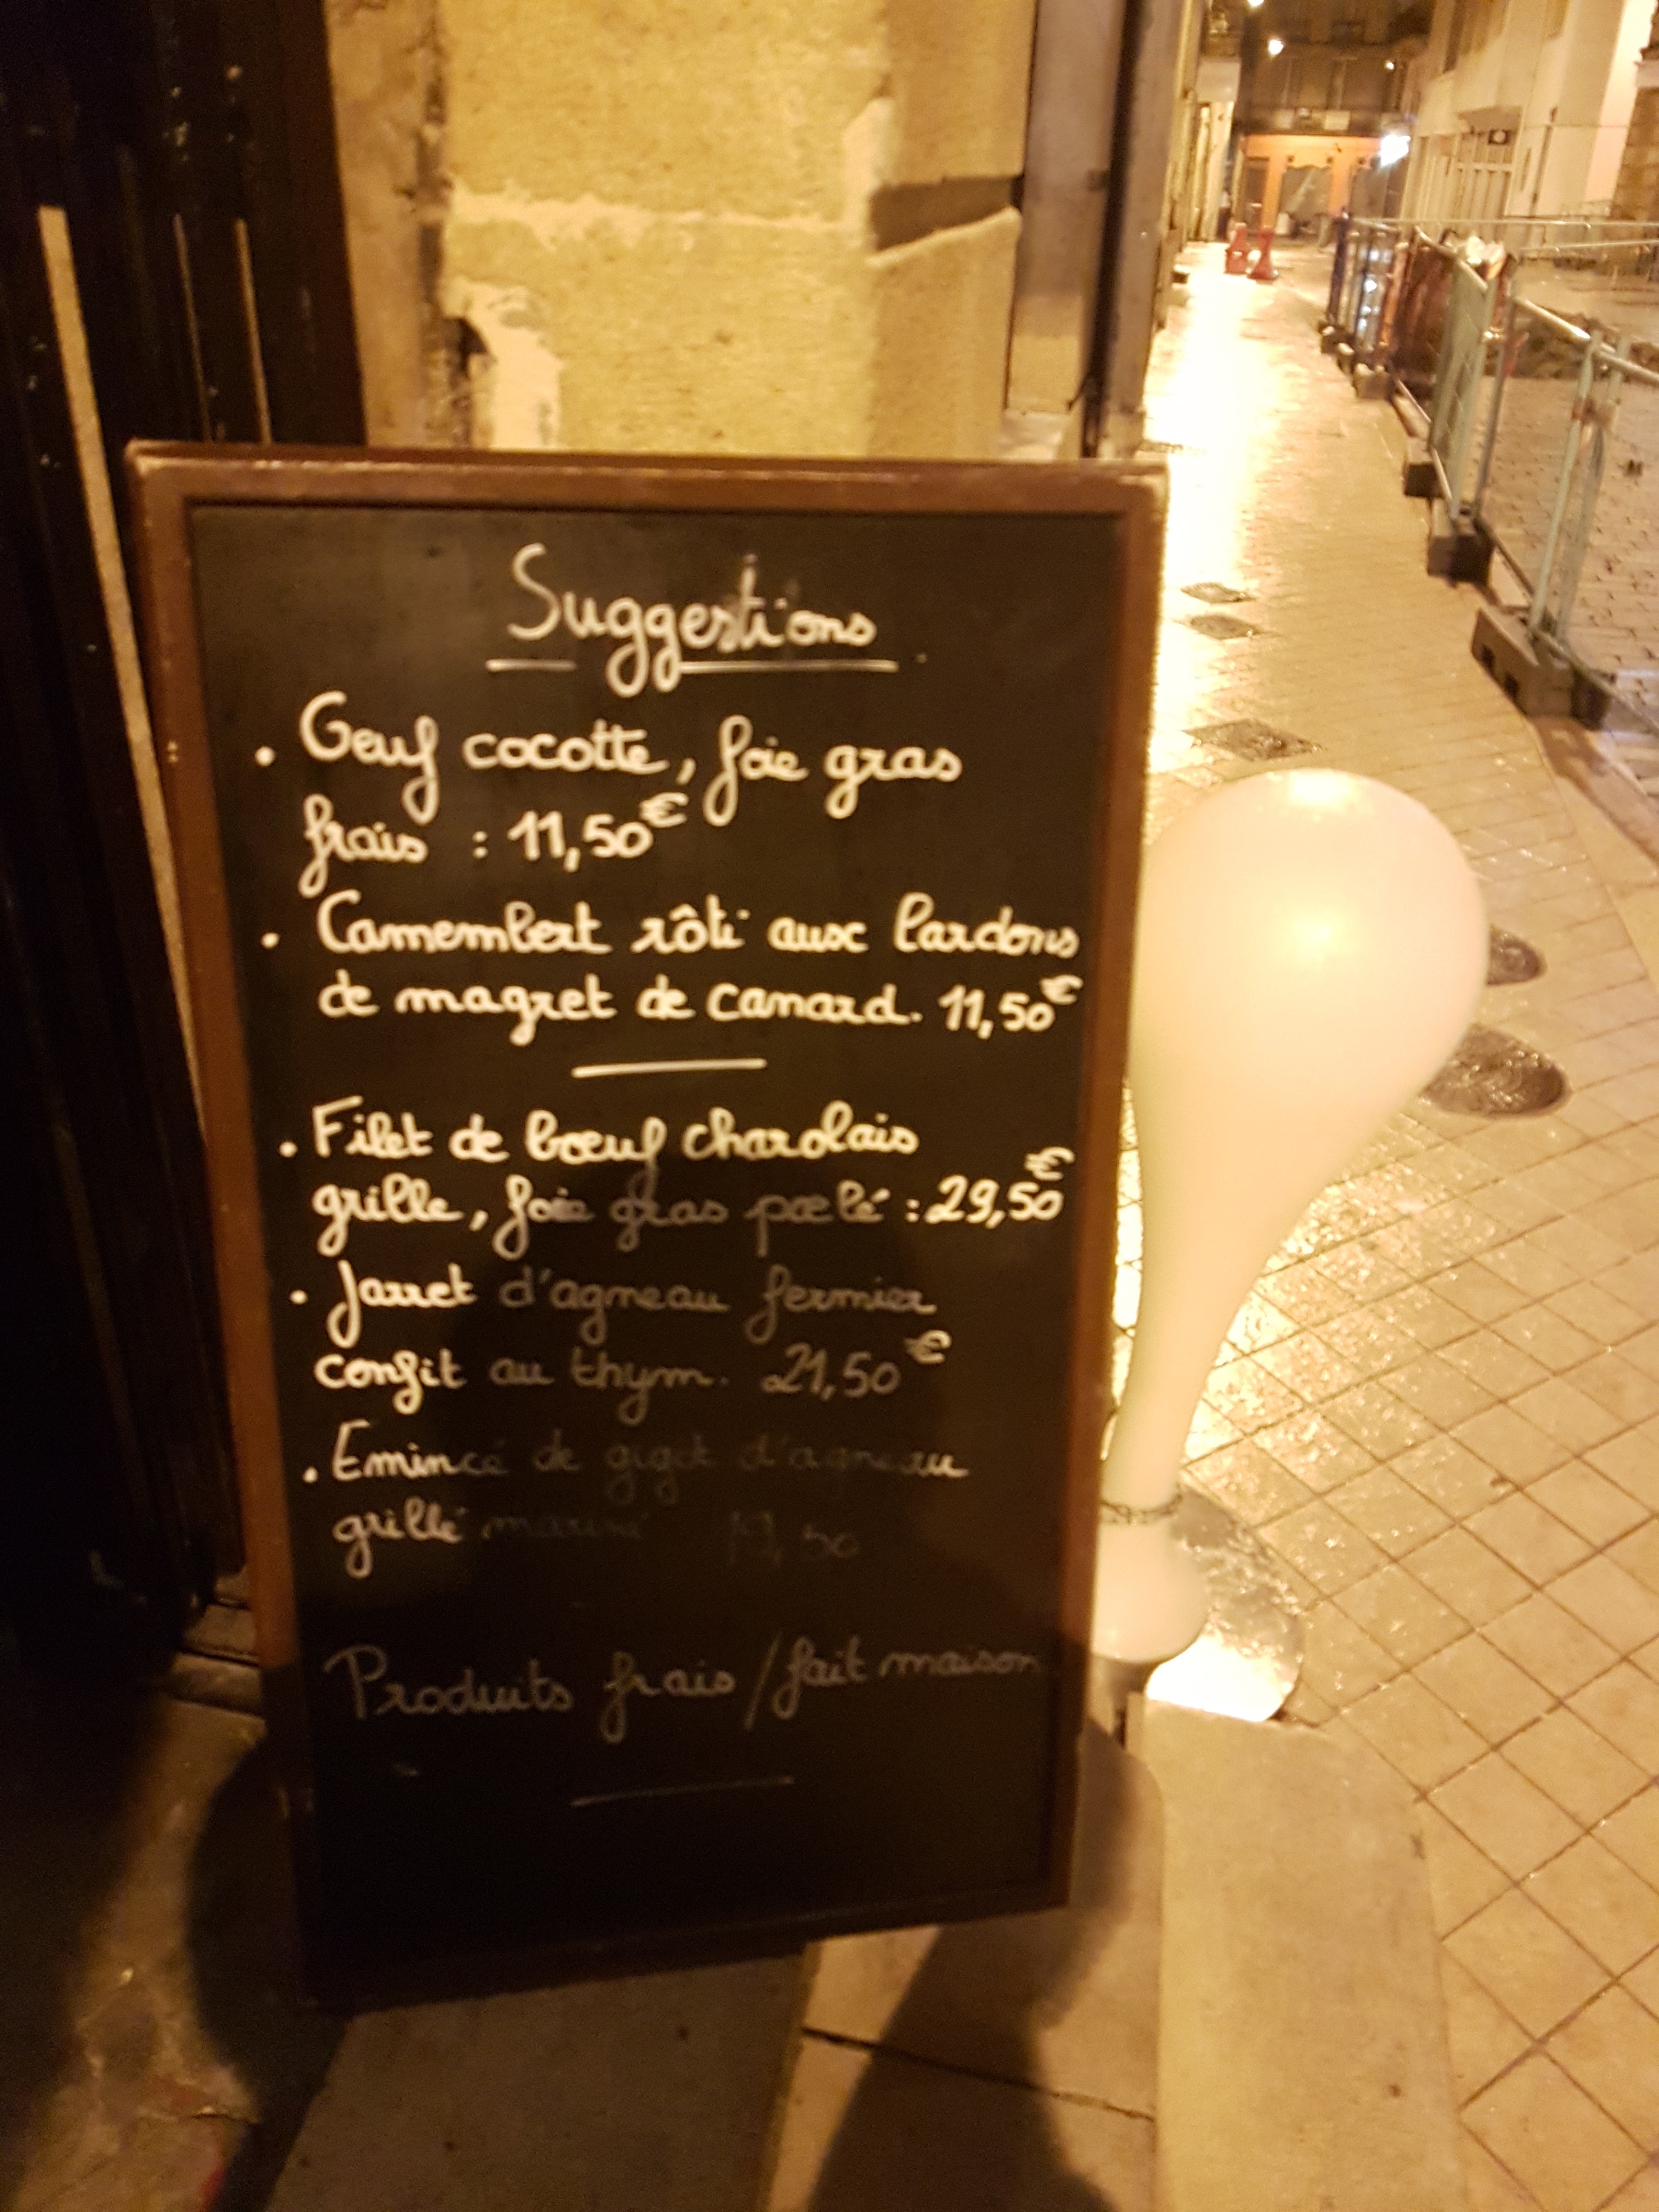 Suggestions
. Oeuf cocotte, foie gras
frais : 11,50€
. Camembert rôti aux lardons
de magret de canard. 11,50€
. Filet de bœuf charolais
grillé, foie gras poelé : 29,50€
. Jarret d'agneau fermier
confit au thym. 21,50€
. Emincé de gigot d'agneau
grillé mariné 19,50
Produits frais / fait maison